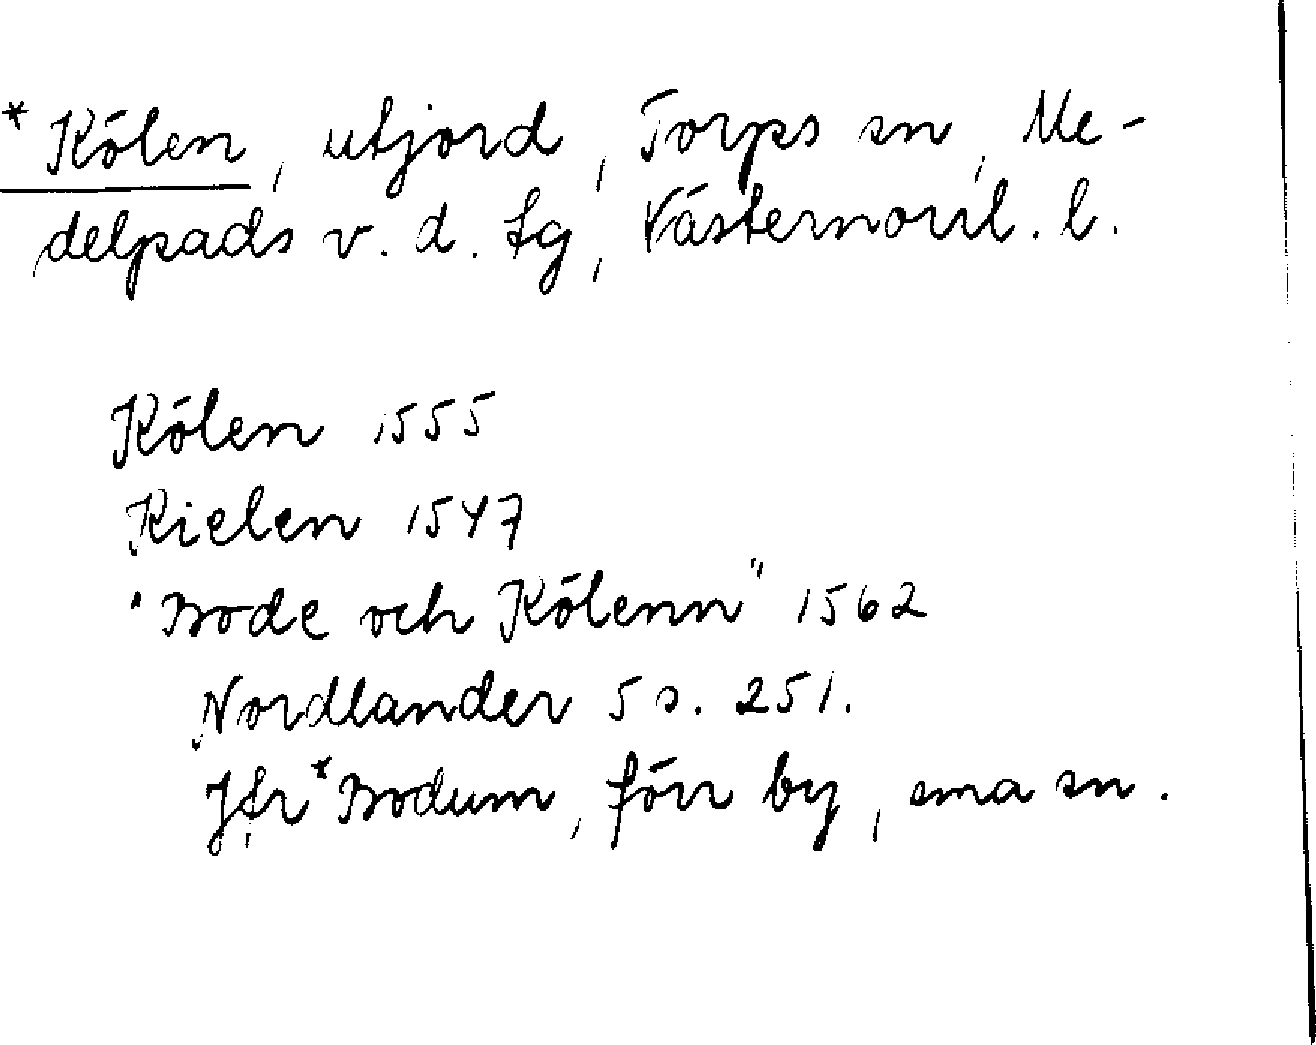 *Kölen, utjord, Torps sn, Me-
delpads v. d. tg, Västernorrl. l.
Kölen 1555
Kielen 1547
"Bode och Kölenn" 1562
Nordlander 5 s. 251.
Jfr *Bodum, förr by, sma sn.